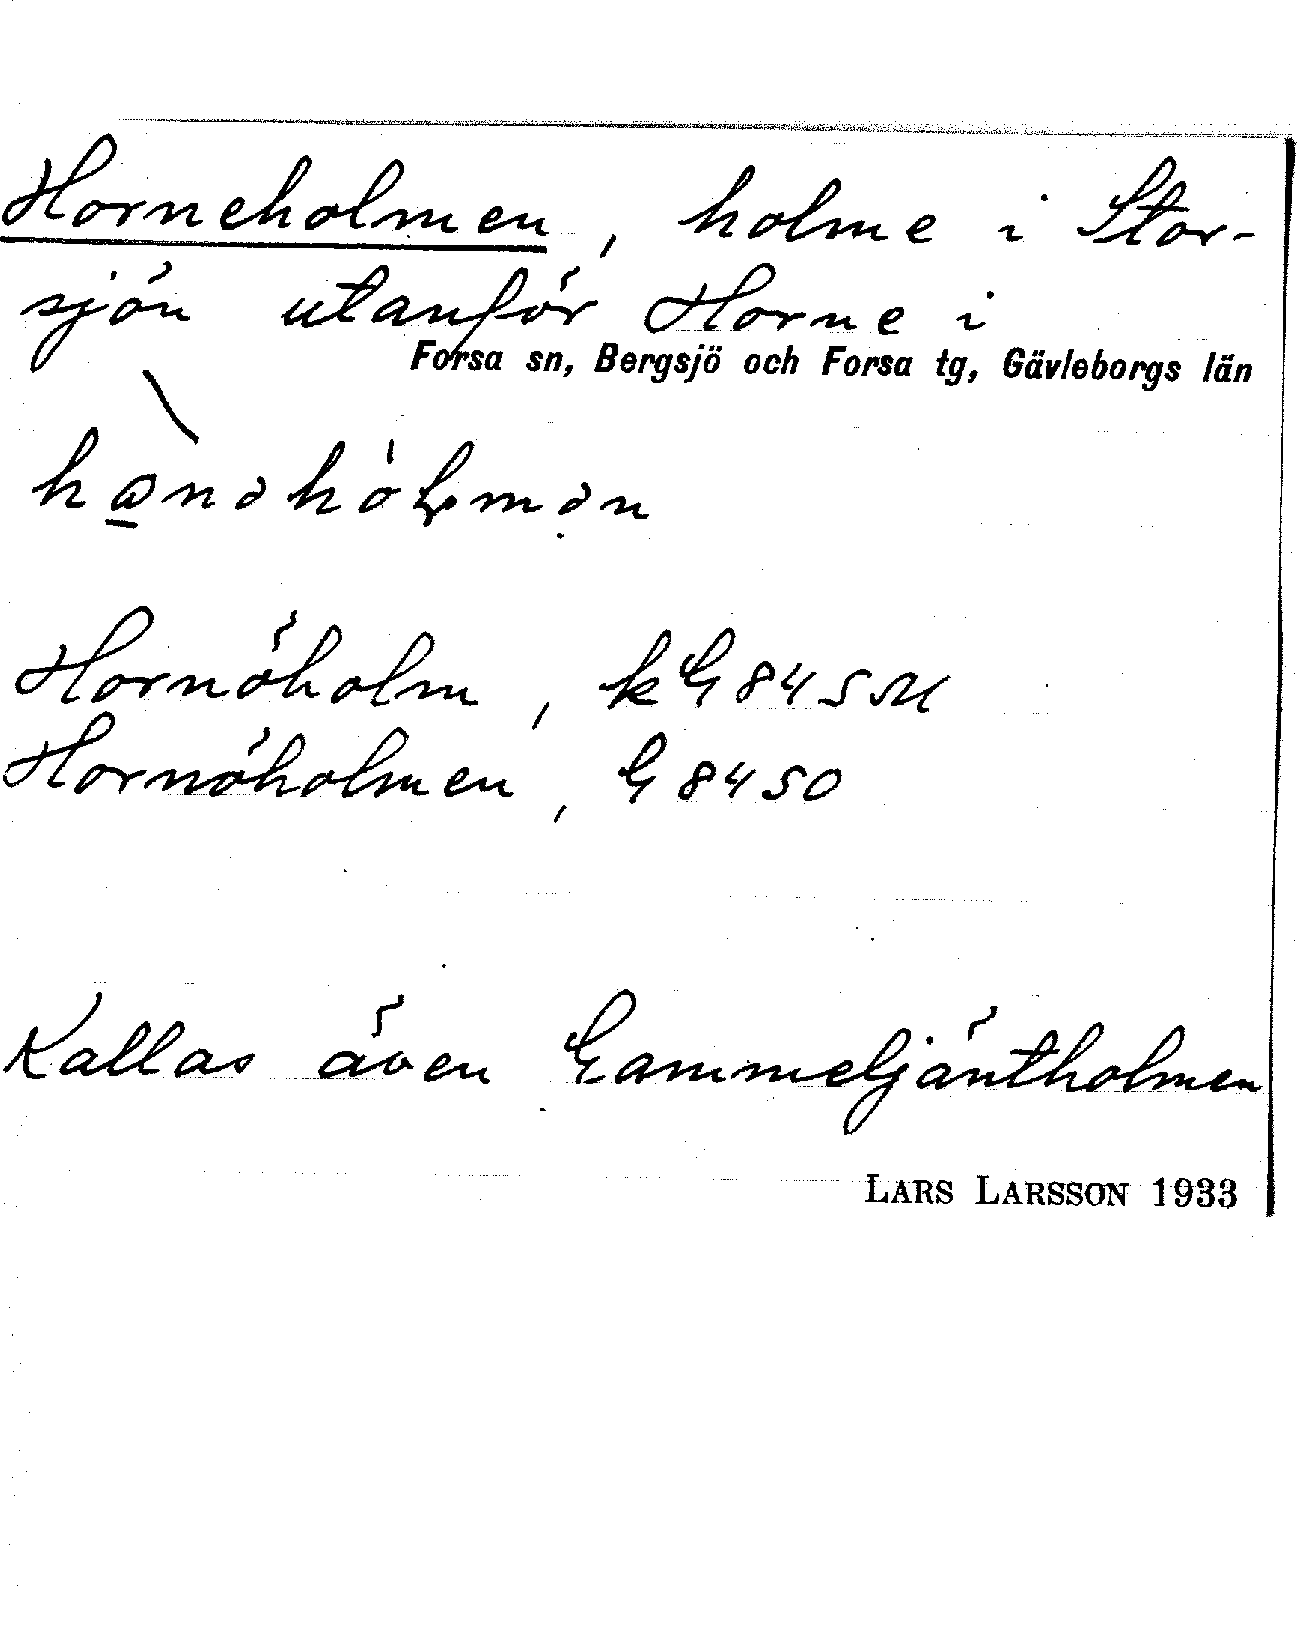 Horneholmen, holme i Stor-
sjön utanför Horne i
Forsa sn, Bergsjö och Forsa tg, Gävleborgs län
Hornöholm, kG 84 SM
Hornöholmen, G 84 SO
Kallas även Gammeljäntholmen
LARS LARSSON 1933